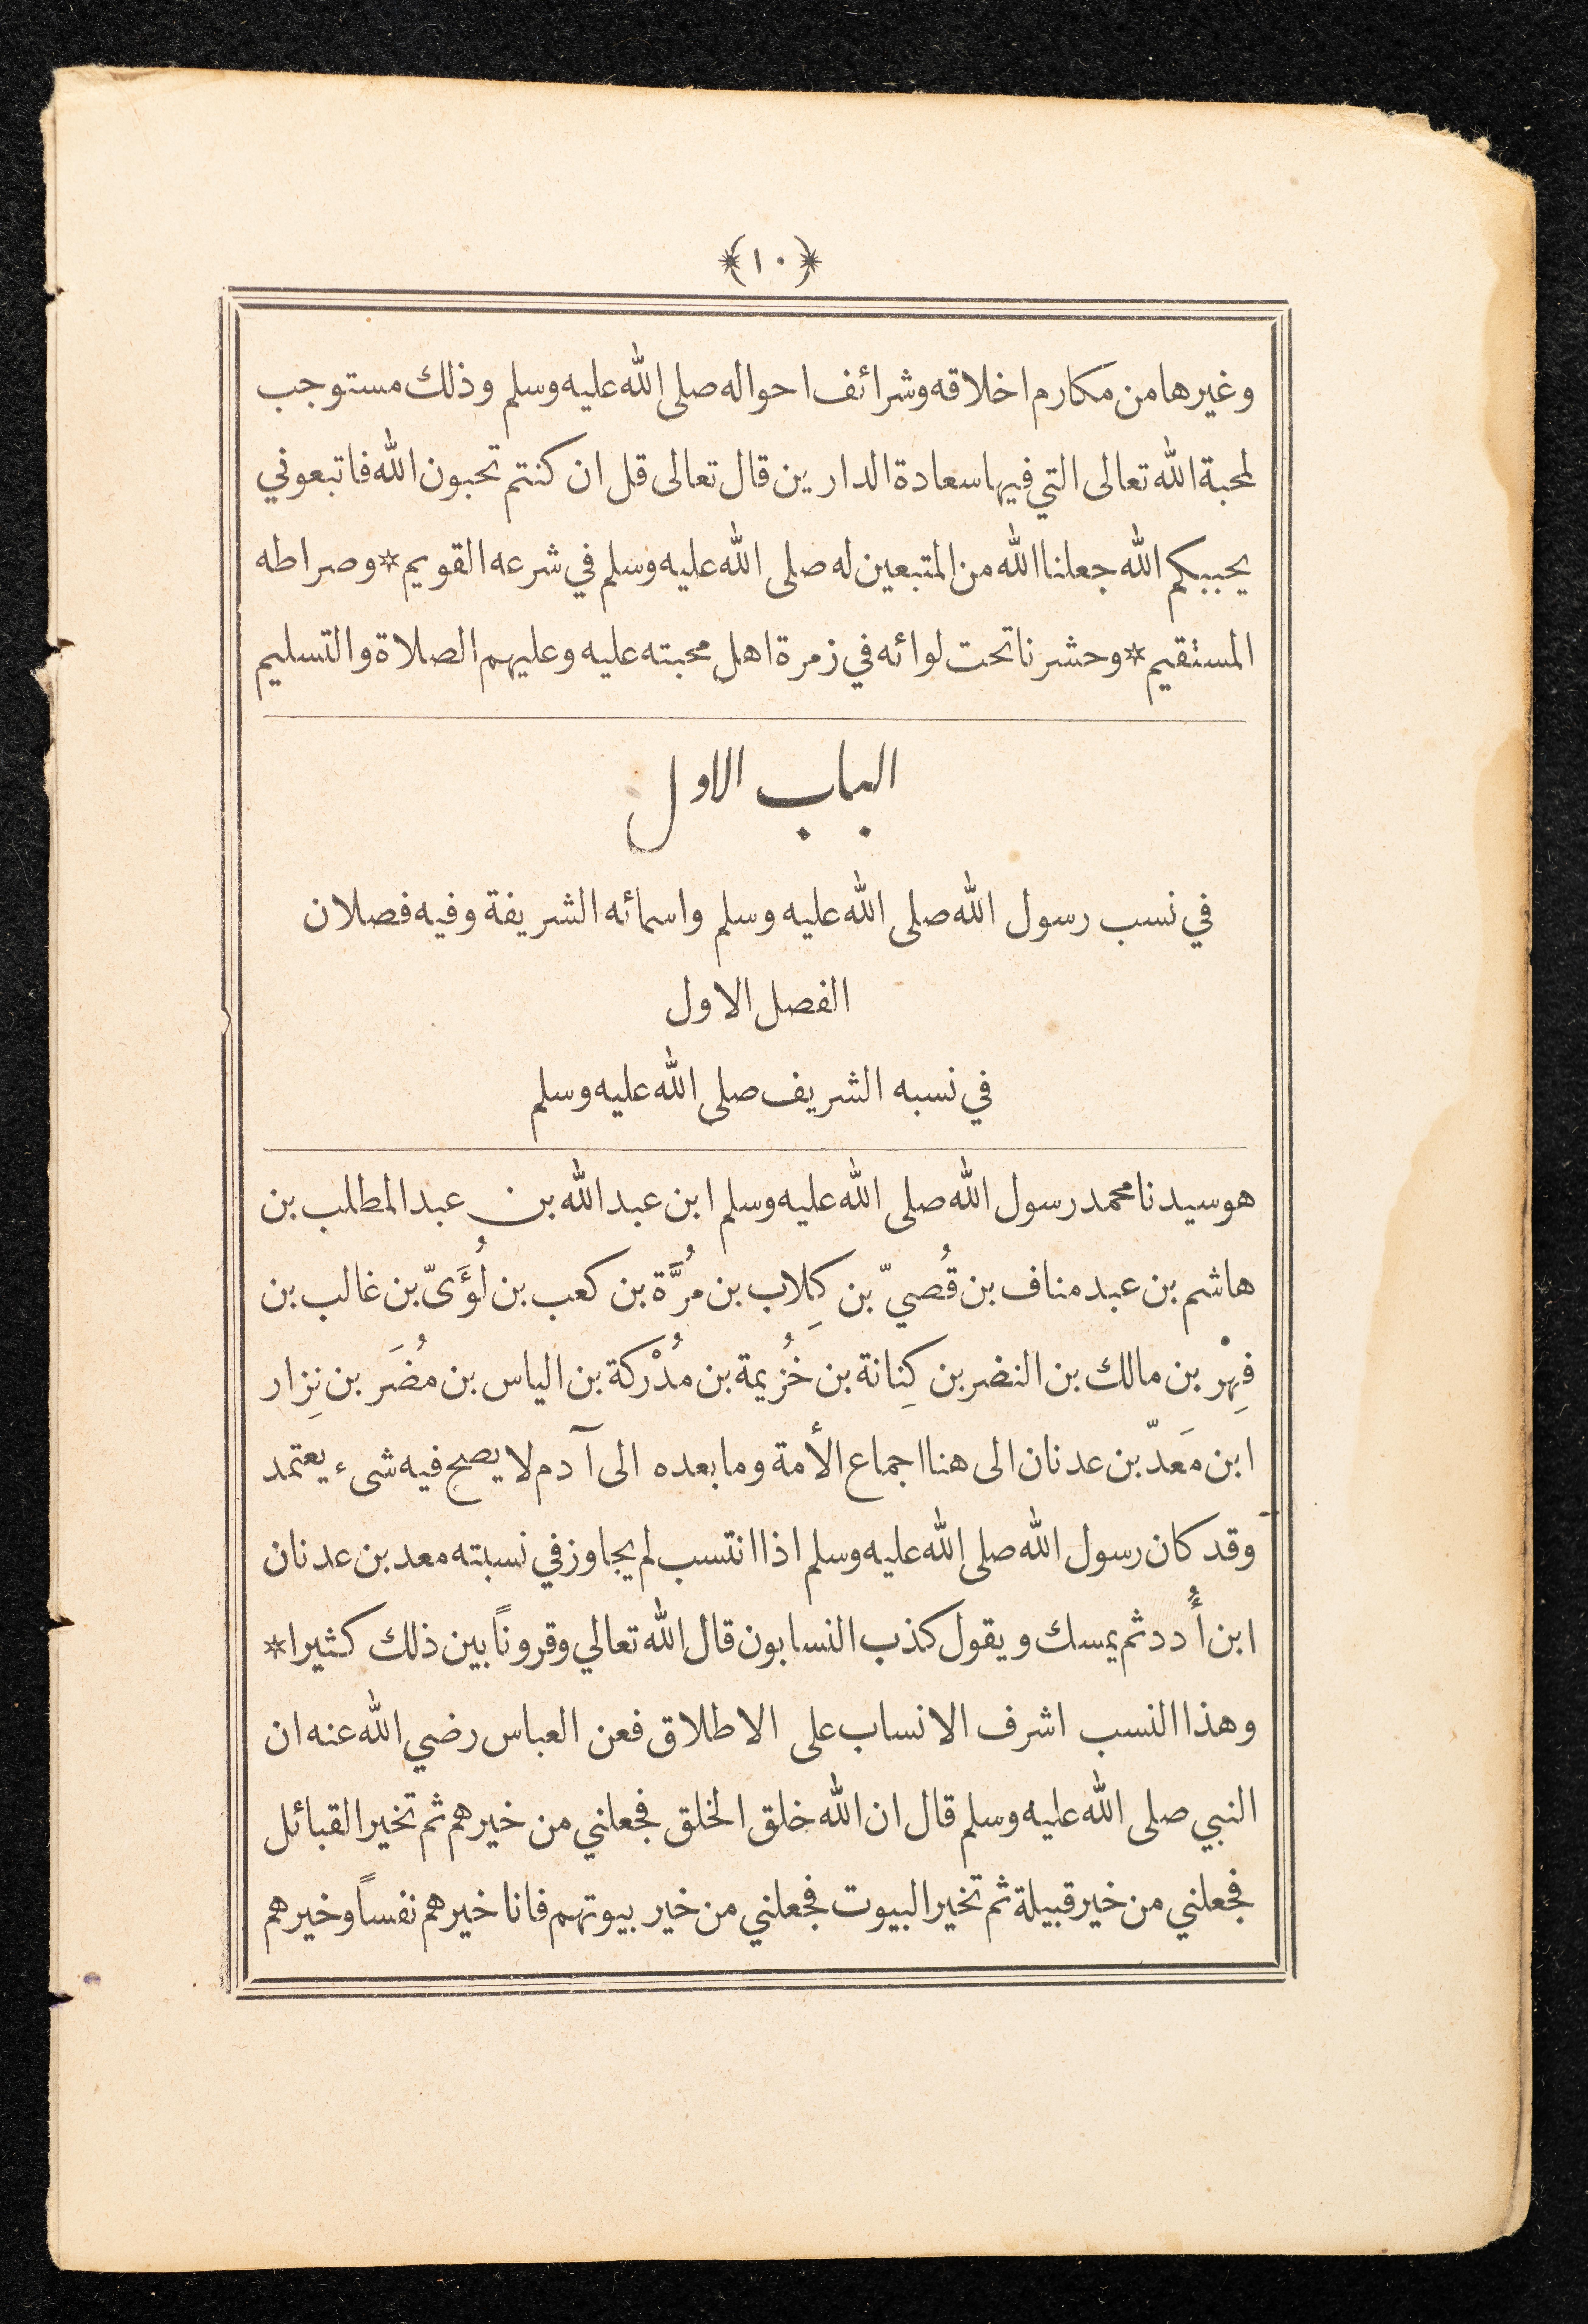 ١٠
وغيرها من مكارم اخلاقه وشرائف احواله صلى الله عليه وسلم وذلك مستوجب
لمحبة الله تعالى التي فيها سعادة الدارين قال تعالى قل ان كنتم تحبون الله فاتبعوني
يحببكم الله جعلنا الله من المتبعين له صلى الله عليه وسلم في شرعه القويم * وصراطه
المستقيم * وحشرنا تحت لوائه في زمرة اهل محبته عليه وعليهم الصلاة والتسليم
الباب الاول
في نسب رسول الله صلى الله عليه وسلم واسمائه الشريفة وفيه فصلان
الفصل الاول
في نسبه الشريف صلى الله عليه وسلم
هو سيدنا محمد رسول الله صلى الله عليه وسلم ابن عبد الله بن عبد المطلب بن
هاشم بن عبد مناف بن قُصيّ بن كِلاب بن مُرَّة بن كعب بن لُؤَىّ بن غالب بن
فِهْر بن مالك بن النضر بن كِنانة بن خُزيمة بن مُدْركة بن الياس بن مُضَر بن نِزار
ابن مَعدّ بن عدنان الى هنا اجماع الأمة وما بعده الى آدم لا يصح فيه شىء يعتمد
وقد كان رسول الله صلى الله عليه وسلم اذا انتسب لم يجاوز في نسبته معد بن عدنان
ابن أُدد ثم يمسك ويقول كذب النسابون قال الله تعالي وقروناً بين ذلك كثيرا *
وهذا النسب اشرف الانساب على الاطلاق فعن العباس رضي الله عنه ان
النبي صلى الله عليه وسلم قال ان الله خلق الخلق فجعلني من خيرهم ثم تخير القبائل
فجعلني من خير قبيلة ثم تخير البيوت فجعلني من خير بيوتهم فانا خيرهم نفساً وخيرهم